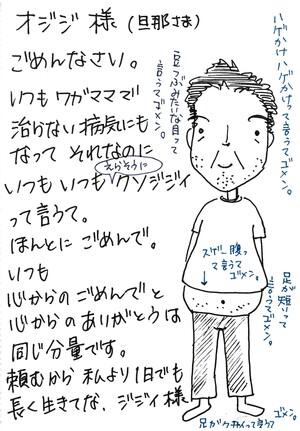 オジジ様(旦那さま)
ごめんなさい。
いつもワガママで
治らない病気にも
なって それなのに
えらそうに
いつもいつもクソジジイ
って言うて。
ほんとに ごめんで。
いつも
心からのごめんでと
心からのありがとうは
同じ分量です。
頼むから 私より1日でも
長く生きてな、ジジイ様
ハゲかけハゲかけって言うてゴメン。
豆つぶみたいな目って
言うてゴメン。
スゲー腹っ
て言うて
ゴメン。
足が短いって
言うてゴメン。
足がクサイって言うて
ゴメン。